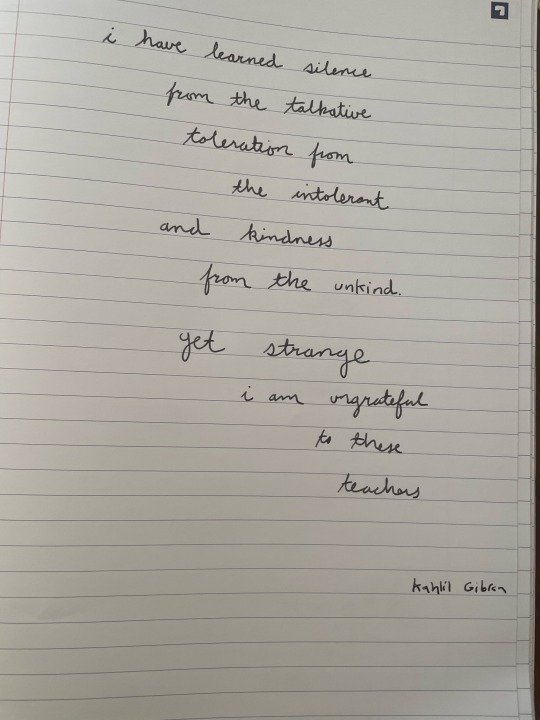 i have learned silence
from the talkative
toleration from
the intolerant
and kindness
from the unkind.
yet strange
i am ungrateful
to these
teachers
Kahlil Gibran